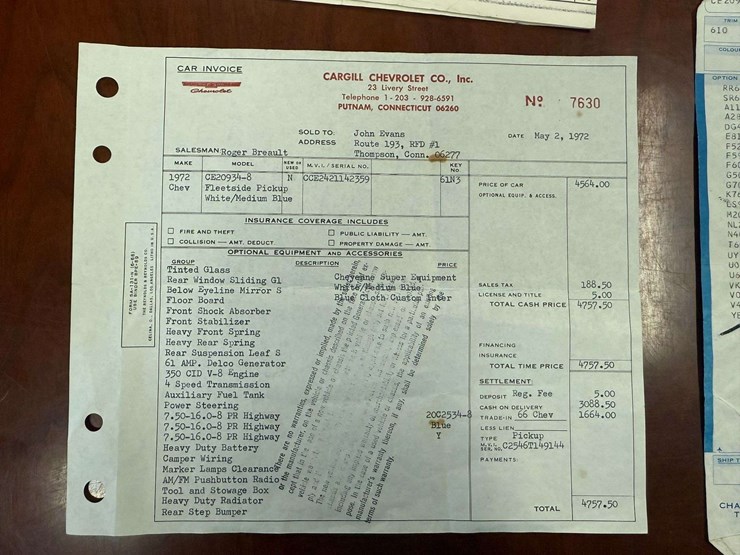 CAR INVOICE
Chevrolet
CARGILL CHEVROLET CO., Inc.
23 Livery Street
Telephone 1 - 203 - 928-6591
PUTNAM, CONNECTICUT 06260
Nº 7630
SOLD TO: John Evans
ADDRESS Route 193, RFD #1
Thompson, Conn. 06277
DATE May 2, 1972
SALESMAN Roger Breault
MAKE MODEL NEW OR USED M.V.I. / SERIAL NO. KEY No.
1972 CE20934-8 N CCE2421142359 61N3
Chev Fleetside Pickup
White/Medium Blue
PRICE OF CAR 4564.00
OPTIONAL EQUIP. & ACCESS.
INSURANCE COVERAGE INCLUDES
FIRE AND THEFT PUBLIC LIABILITY — AMT.
COLLISION — AMT. DEDUCT. PROPERTY DAMAGE — AMT.
OPTIONAL EQUIPMENT AND ACCESSORIES
GROUP DESCRIPTION PRICE
Tinted Glass
Rear Window Sliding Gl Cheyenne Super Equipment
Below Eyeline Mirror S White/Medium Blue
Floor Board Blue Cloth Custom Inter
Front Shock Absorber
Front Stabilizer
Heavy Front Spring
Heavy Rear Spring
Rear Suspension Leaf S
61 AMP. Delco Generator
350 CID V-8 Engine
4 Speed Transmission
Auxiliary Fuel Tank
Power Steering
7.50-16.0-8 PR Highway 20C2534-8
7.50-16.0-8 PR Highway Blue
7.50-16.0-8 PR Highway Y
Heavy Duty Battery
Camper Wiring
Marker Lamps Clearance
AM/FM Pushbutton Radio
Tool and Stowage Box
Heavy Duty Radiator
Rear Step Bumper
SALES TAX 188.50
LICENSE AND TITLE 5.00
TOTAL CASH PRICE 4757.50
FINANCING
INSURANCE
TOTAL TIME PRICE 4757.50
SETTLEMENT:
DEPOSIT Reg. Fee 5.00
CASH ON DELIVERY 3088.50
TRADE-IN 66 Chev 1664.00
LESS LIEN
TYPE Pickup
M.V.I. SER. NO. C2546T149144
PAYMENTS:
TOTAL 4757.50
TRIM
610
OPTION
SHIP T